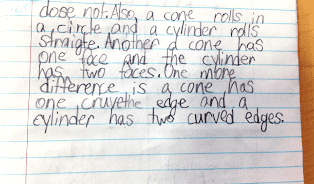 dose not. Also, a cone rolls in
a circle and a cylinder rolls
straigte. Another a cone has
one face and the cylinder
has two faces. One more
difference is a cone has
one cruvethe edge and a
cylinder has two curved edges.